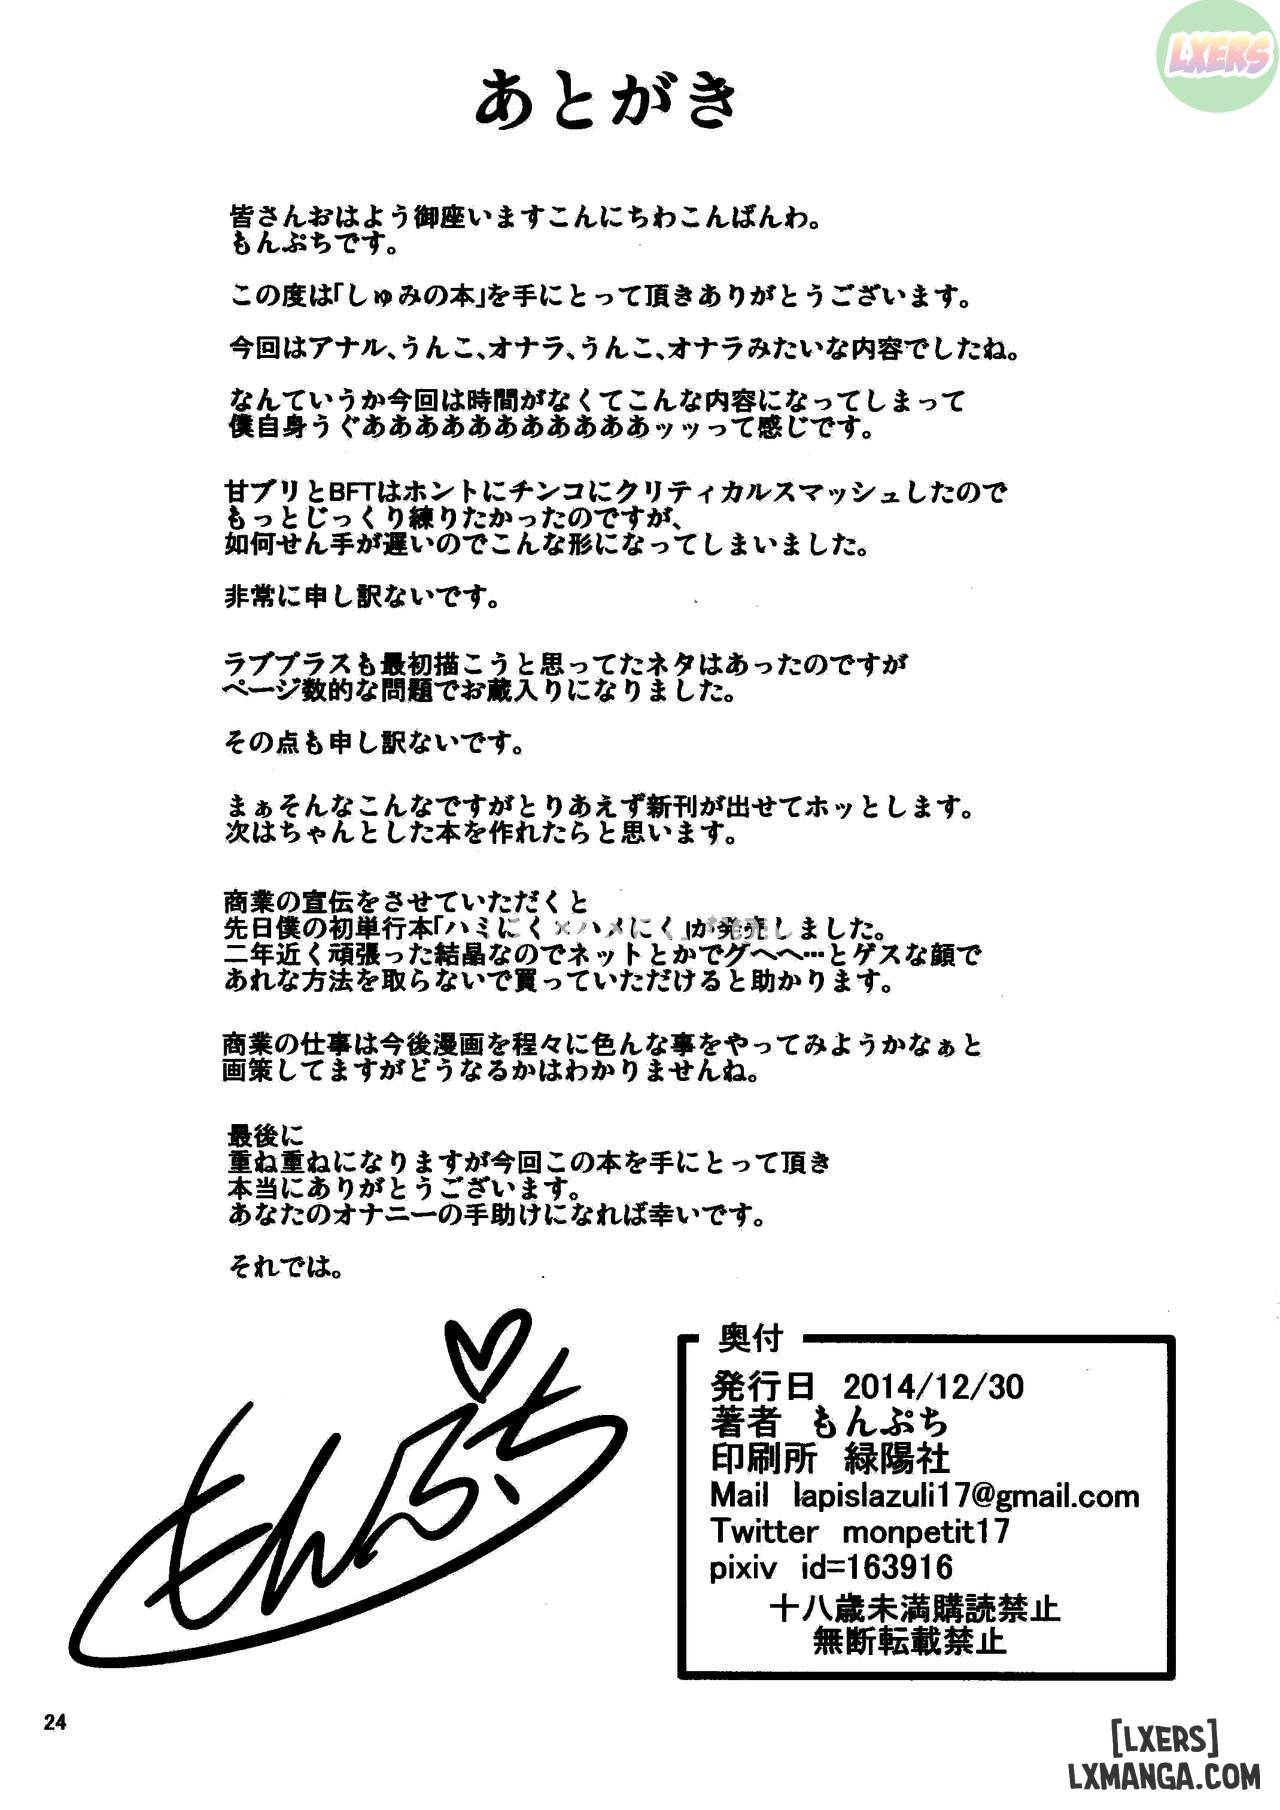 LXERS
あとがき
皆さんおはよう御座いますこんにちわこんばんわ。
もんぷちです。
この度は「しゅみの本」を手にとって頂きありがとうございます。
今回はアナル、うんこ、オナラ、うんこ、オナラみたいな内容でしたね。
なんていうか今回は時間がなくてこんな内容になってしまって
僕自身うぐあああああああああああッッって感じです。
甘ブリとBFTはホントにチンコにクリティカルスマッシュしたので
もっとじっくり練りたかったのですが、
如何せん手が遅いのでこんな形になってしまいました。
非常に申し訳ないです。
ラブプラスも最初描こうと思ってたネタはあったのですが
ページ数的な問題でお蔵入りになりました。
その点も申し訳ないです。
まぁそんなこんなですがとりあえず新刊が出せてホッとします。
次はちゃんとした本を作れたらと思います。
商業の宣伝をさせていただくと
先日僕の初単行本「ハミにく×ハメにく」が発売しました。
二年近く頑張った結晶なのでネットとかでグへへ…とゲスな顔で
あれな方法を取らないで買っていただけると助かります。
商業の仕事は今後漫画を程々に色んな事をやってみようかなぁと
画策してますがどうなるかはわかりませんね。
最後に
重ね重ねになりますが今回この本を手にとって頂き
本当にありがとうございます。
あなたのオナニーの手助けになれば幸いです。
それでは。
もんぷち
奥付
発行日 2014/12/30
著者 もんぷち
印刷所 緑陽社
Mail lapislazuli17@gmail.com
Twitter monpetit17
pixiv id=163916
十八歳未満購読禁止
無断転載禁止
24
[LXERS]
LXMANGA.COM